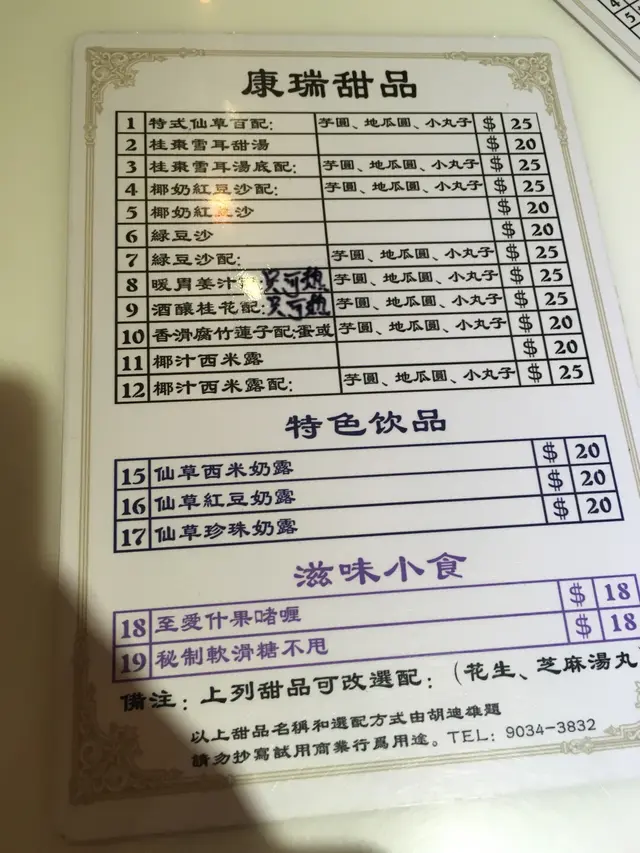 康瑞甜品
1 特式仙草百配: 芋圓、地瓜圓、小丸子 $ 25
2 桂棗雪耳甜湯 $ 20
3 桂棗雪耳湯底配: 芋圓、地瓜圓、小丸子 $ 25
4 椰奶紅豆沙配: 芋圓、地瓜圓、小丸子 $ 25
5 椰奶紅豆沙 $ 20
6 綠豆沙 $ 20
7 綠豆沙配: 芋圓、地瓜圓、小丸子 $ 25
8 暖胃姜汁 只可熱 芋圓、地瓜圓、小丸子 $ 25
9 酒釀桂花配: 只可熱 芋圓、地瓜圓、小丸子 $ 25
10 香滑腐竹蓮子配:蛋或 芋圓、地瓜圓、小丸子 $ 20
11 椰汁西米露 $ 20
12 椰汁西米露配: 芋圓、地瓜圓、小丸子 $ 25
特色饮品
15 仙草西米奶露 $ 20
16 仙草紅豆奶露 $ 20
17 仙草珍珠奶露 $ 20
滋味小食
18 至愛什果啫喱 $ 18
19 秘制軟滑糖不甩 $ 18
備注: 上列甜品可改選配: (花生、芝麻湯丸
以上甜品名稱和選配方式由胡迪雄題
請勿抄寫試用商業行爲用途。TEL: 9034-3832